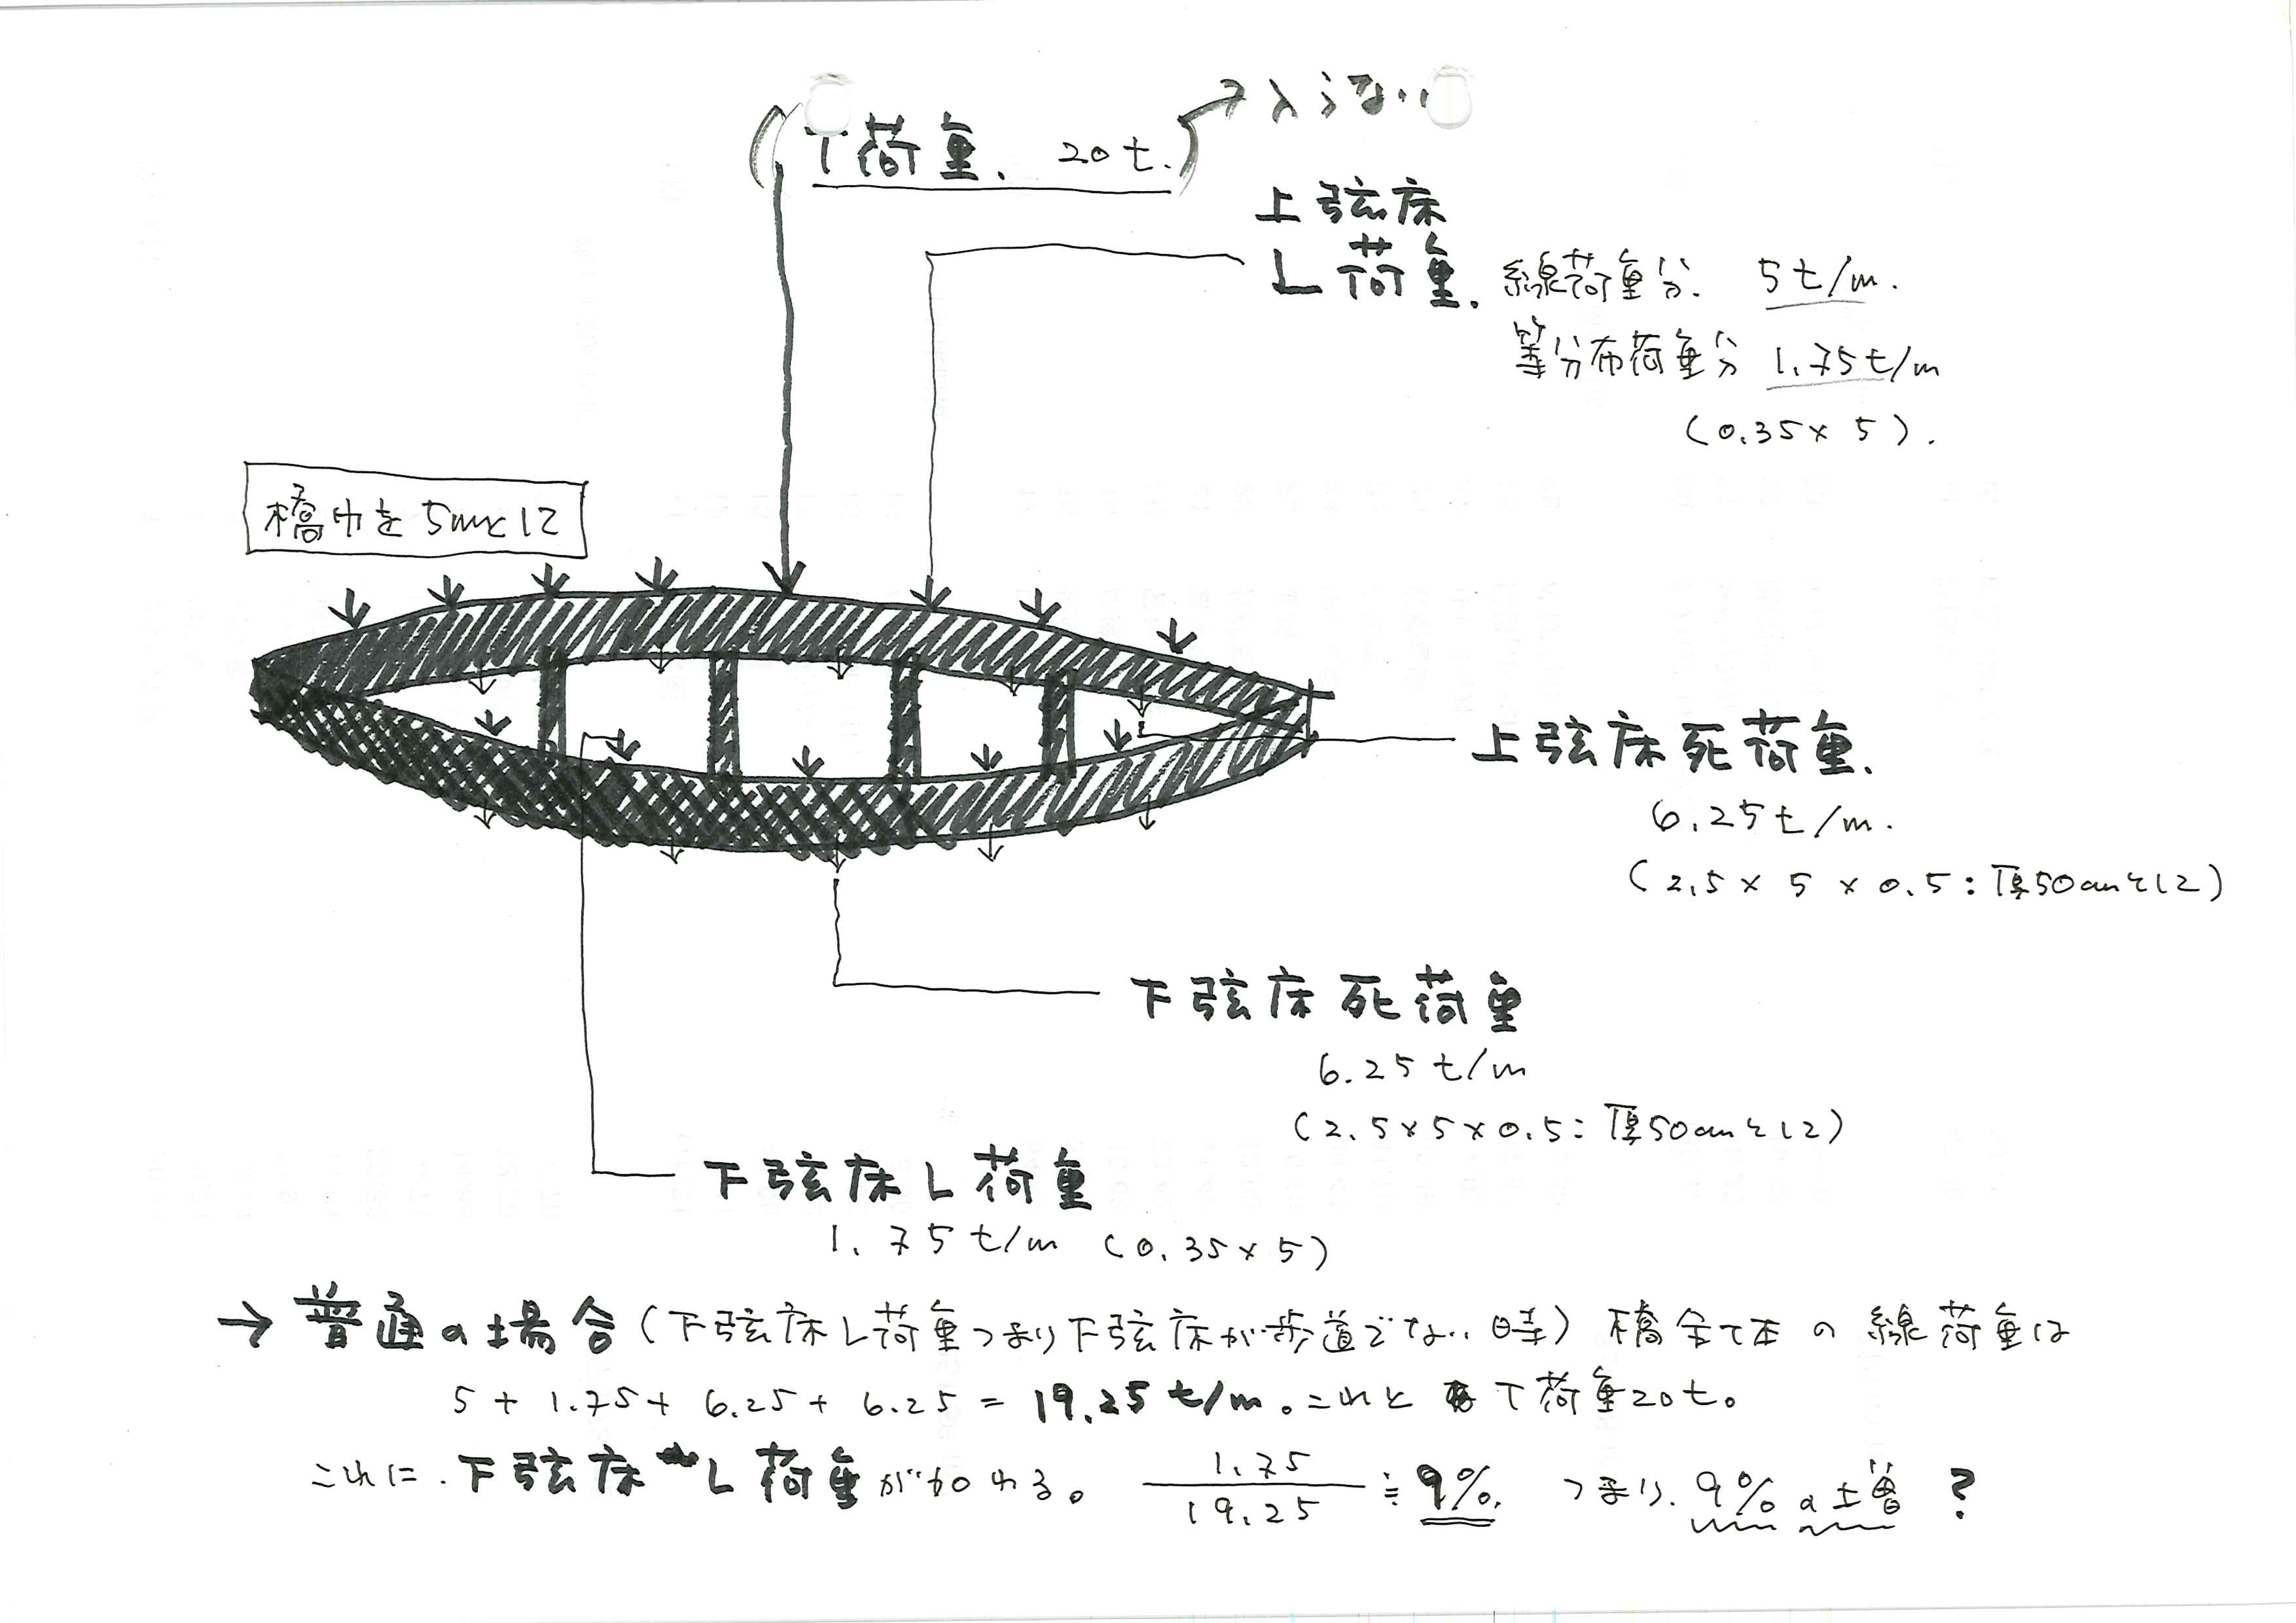 T荷重. 20t.
入らない
上弦床
L荷重. 線荷重分. 5t/m.
等分布荷重分 1.75t/m
(0.35×5).
橋巾を5mとして
上弦床死荷重.
6.25t/m.
(2.5×5×0.5:厚50cmとして)
下弦床死荷重
6.25t/m
(2.5×5×0.5:厚50cmとして)
下弦床L荷重
1.75t/m (0.35×5)
→普通の場合(下弦床L荷重つまり下弦床が歩道でない時) 橋全体の線荷重は
5+1.75+6.25+6.25=19.25t/m。これとT荷重20t。
これに.下弦床L荷重が加わる。 1.75/19.25≒9%. つまり.9%の増?